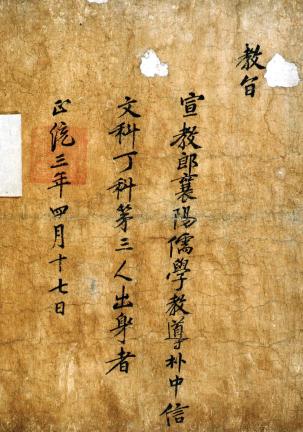 教旨
宣教郎襄陽儒學教導朴中信
文科丁科第三人出身者
正統三年四月十七日